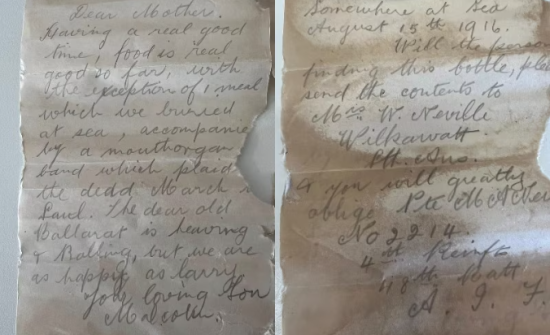 Dear Mother.
Having a real good
time, food is real
good so far, with
the exception of 1 meal
which we buried
at sea, accompanie
by a mouthorgan
band which plaid
the dead March
Saul. The dear old
Ballarat is heaving
& Balling, but we are
as happy as larry
Your loving Son
Malcolm.
Somewhere at Sea
August 15th 1916.
Will the person
finding this bottle, plea
send the contents to
Mrs W. Neville
Wilkawatt
Sth. Aus.
& you will greatly
oblige Pte M A Nev
No 2214.
4th Reinfs
48th Batt
A. I. F.